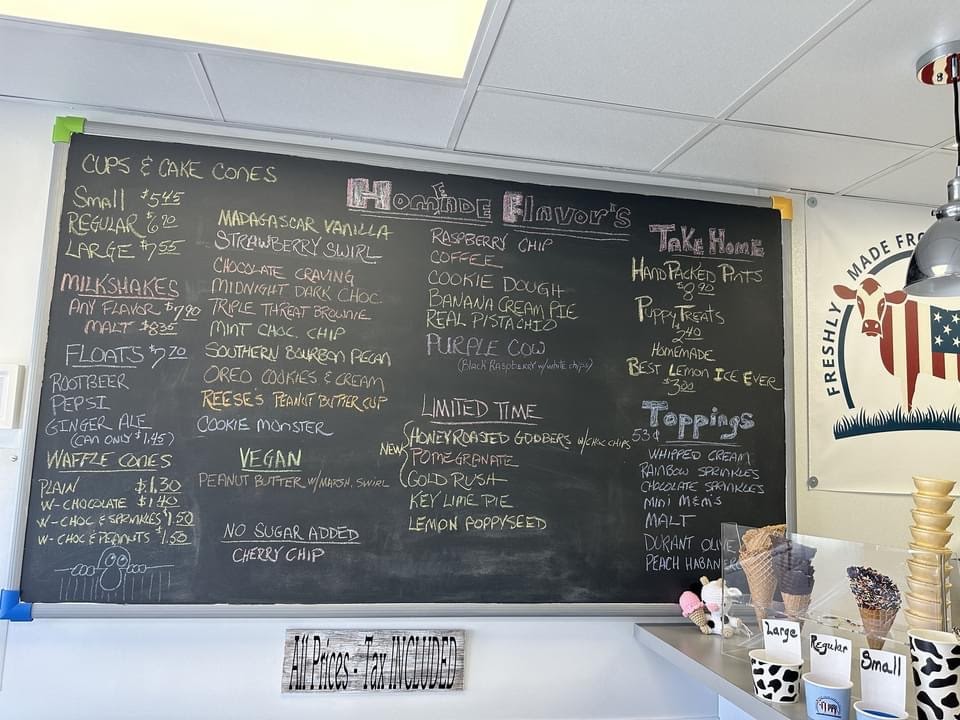 CUPS & CAKE CONES
Small $5.45
REGULAR $6.20
LARGE $7.55
MILKSHAKES
ANY FLAVOR $7.90
MALT $8.35
FLOATS $7.20
ROOTBEER
PEPSI
GINGER ALE
(CAN ONLY $1.45)
WAFFLE CONES
PLAIN $1.30
W-CHOCOLATE $1.40
W-CHOC & SPRINKLES $1.50
W-CHOC & PEANUTS $1.50
HomEmADE FlAvor's
MADAGASCAR VANILLA
STRAWBERRY SWIRL
CHOCOLATE CRAVING
MIDNIGHT DARK CHOC.
TRIPLE THREAT BROWNIE
MINT CHOC. CHIP
SOUTHERN BOURBON PECAN
OREO COOKIES & CREAM
REESE'S PEANUT BUTTER CUP
COOKIE MONSTER
VEGAN
PEANUT BUTTER W/MARSH. SWIRL
NO SUGAR ADDED
CHERRY CHIP
RASPBERRY CHIP
COFFEE
COOKIE DOUGH
BANANA CREAM PIE
REAL PISTACHIO
PURPLE COW
(Black Raspberry w/white chips)
LIMITED TIME
NEW
HONEY ROASTED GOOBERS W/CHOC CHIPS
POMEGRANATE
GOLD RUSH
KEY LIME PIE
LEMON POPPYSEED
TAKE HOME
HAND PACKED PINTS
$8.90
PUPPY TREATS
$2.40
HOMEMADE
BEST LEMON ICE EVER
$3.00
Toppings
53¢
WHIPPED CREAM
RAINBOW SPRINKLES
CHOCOLATE SPRINKLES
MINI M&M'S
MALT
DURANT OLIVE
PEACH HABANE
FRESHLY MADE FRO
All Prices - Tax INCLUDED
Large
Regular
Small